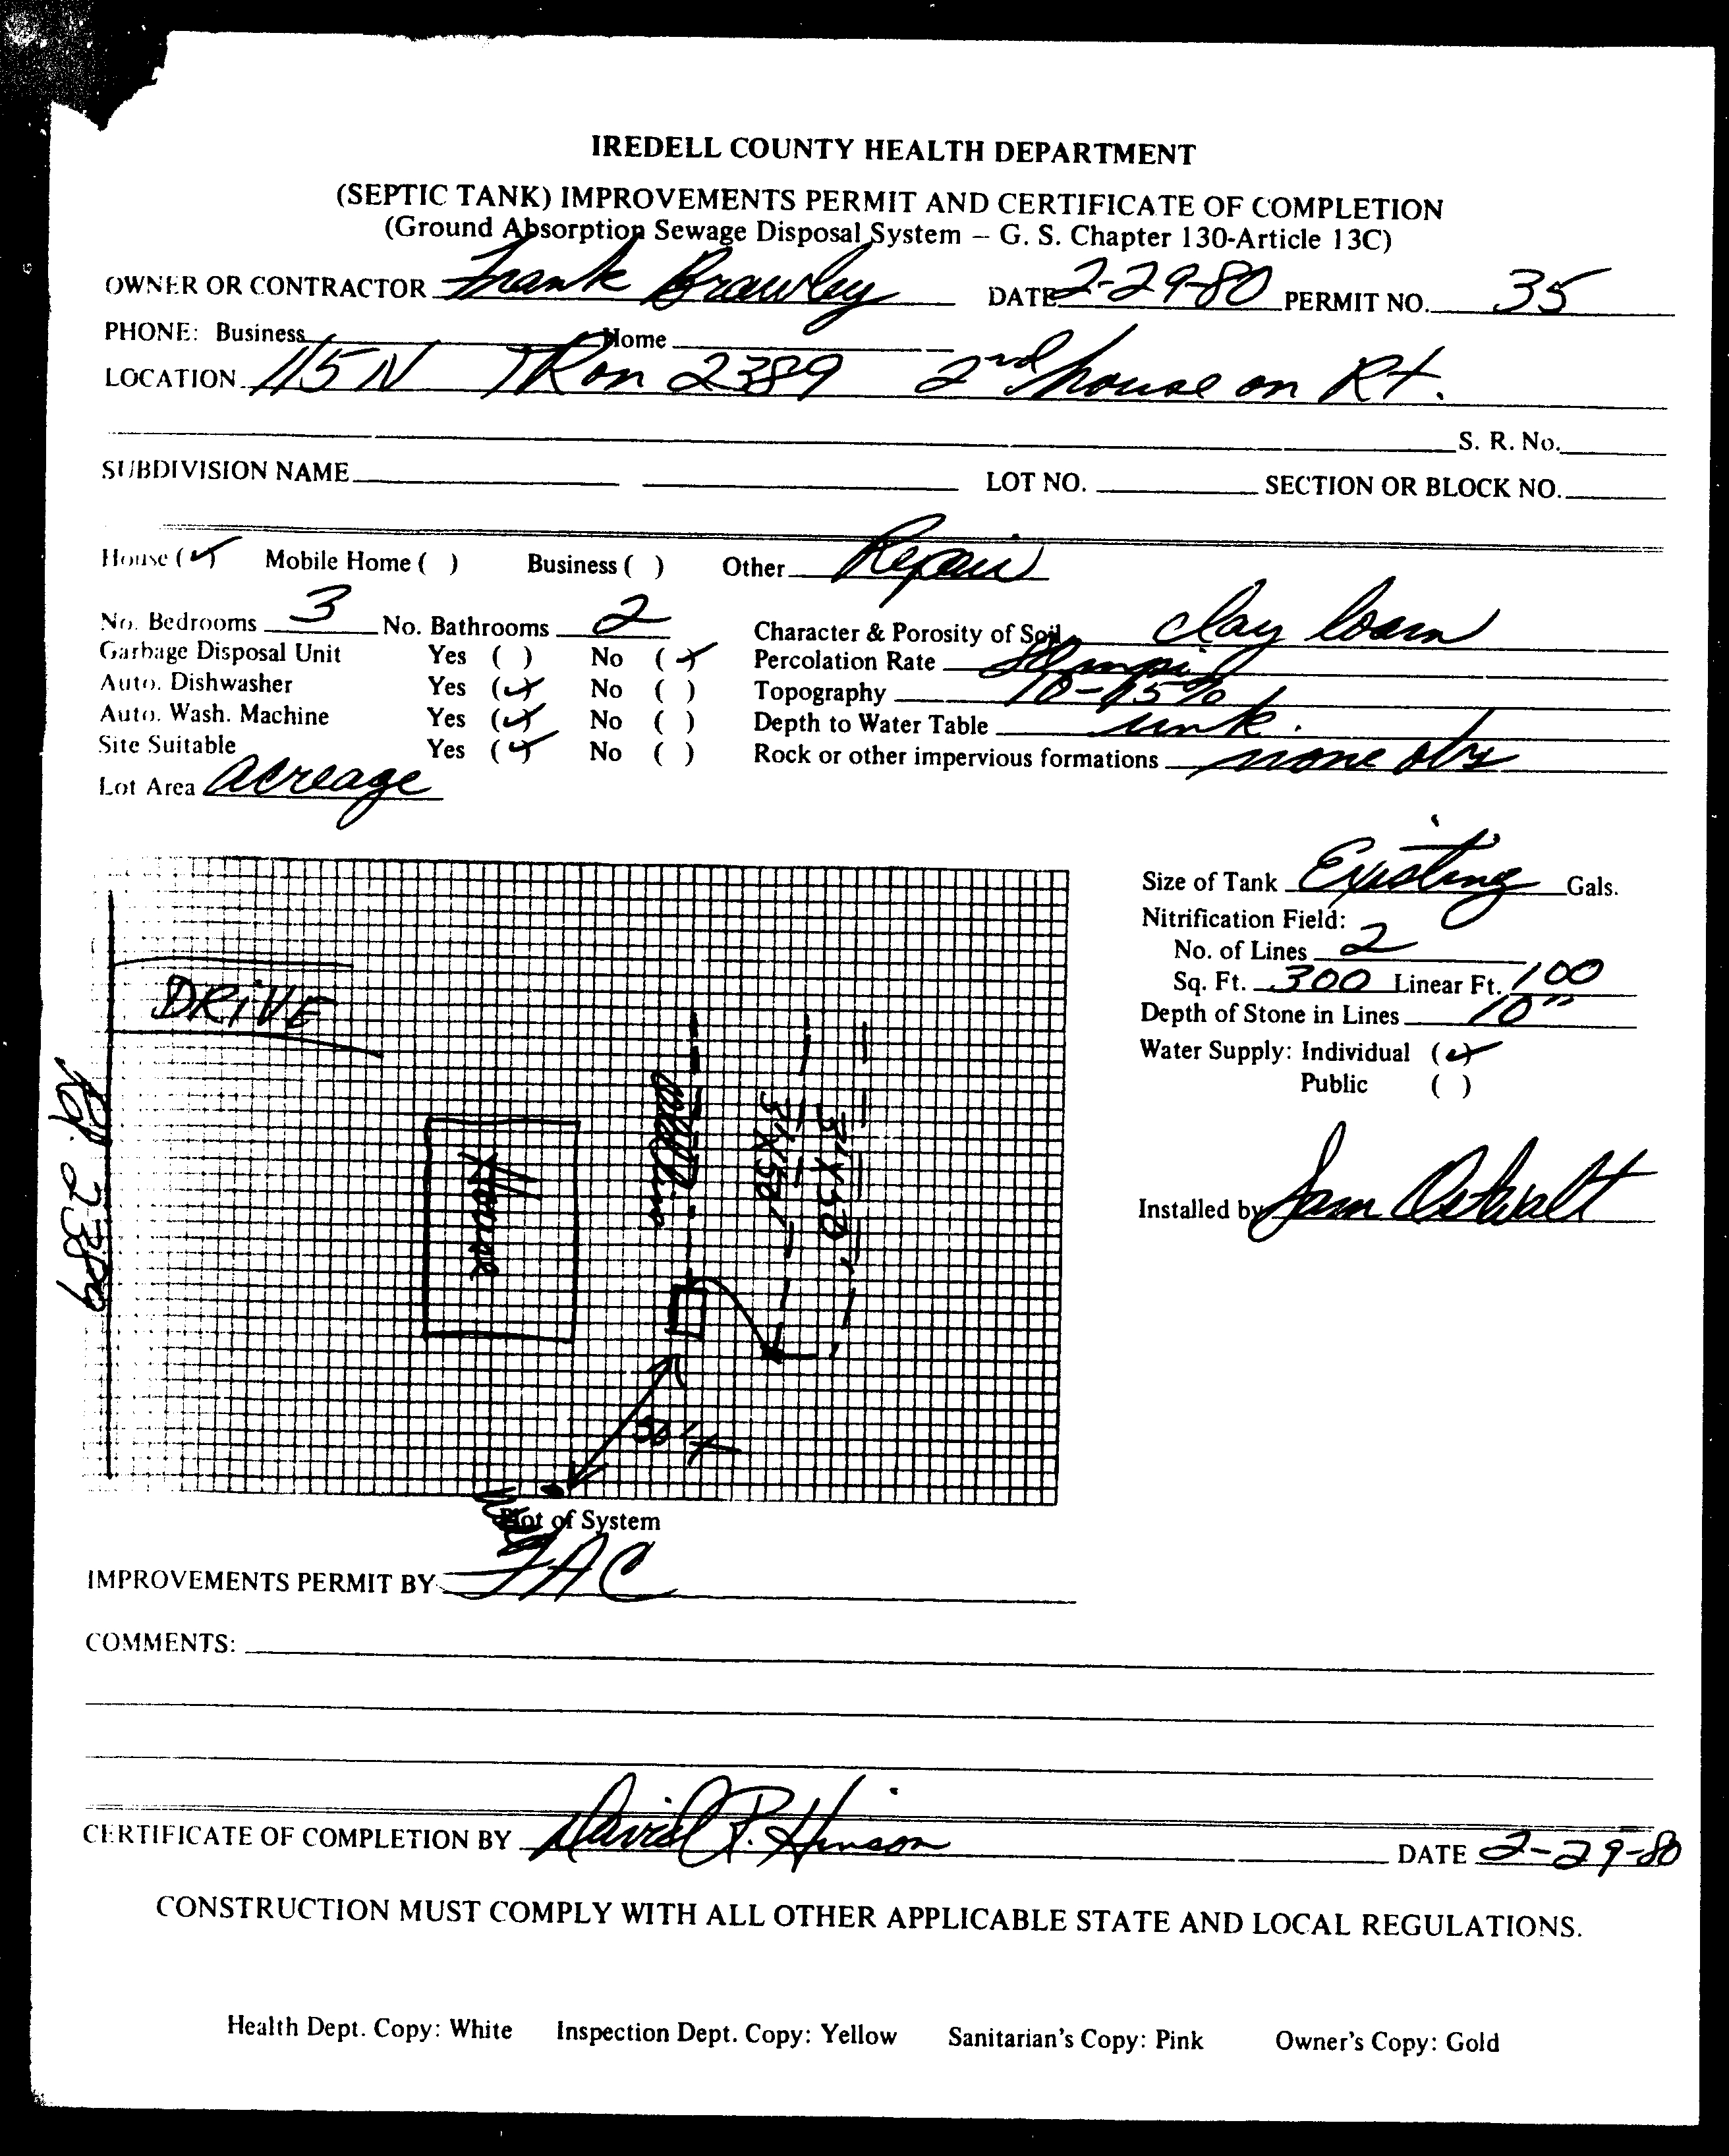 IREDELL COUNTY HEALTH DEPARTMENT
(SEPTIC TANK) IMPROVEMENTS PERMIT AND CERTIFICATE OF COMPLETION
(Ground Absorption Sewage Disposal System – G. S. Chapter 130-Article 13C)
OWNER OR CONTRACTOR Frank Brawley DATE 2-29-80 PERMIT NO. 35
PHONE: Business Home
LOCATION 115 N TR on 2389 2nd house on Rt.
S. R. No.
SUBDIVISION NAME LOT NO. SECTION OR BLOCK NO.
House (✓) Mobile Home ( ) Business ( ) Other Repair
No. Bedrooms 3 No. Bathrooms 2 Character & Porosity of Soil clay loam
Garbage Disposal Unit Yes ( ) No (✓) Percolation Rate
Auto. Dishwasher Yes (✓) No ( ) Topography 10-15%
Auto. Wash. Machine Yes (✓) No ( ) Depth to Water Table unk.
Site Suitable Yes (✓) No ( ) Rock or other impervious formations none obs
Lot Area acreage
Size of Tank Existing Gals.
Nitrification Field:
No. of Lines 2
Sq. Ft. 300 Linear Ft. 100
Depth of Stone in Lines 10"
Water Supply: Individual (✓)
Public ( )
Installed by Sam Ostwalt
DRIVE
Rd. 2389
House
3'X50'
3'X50'
50'+
Plot of System
IMPROVEMENTS PERMIT BY JAC
COMMENTS:
CERTIFICATE OF COMPLETION BY David P. Hinson DATE 2-29-80
CONSTRUCTION MUST COMPLY WITH ALL OTHER APPLICABLE STATE AND LOCAL REGULATIONS.
Health Dept. Copy: White Inspection Dept. Copy: Yellow Sanitarian's Copy: Pink Owner's Copy: Gold